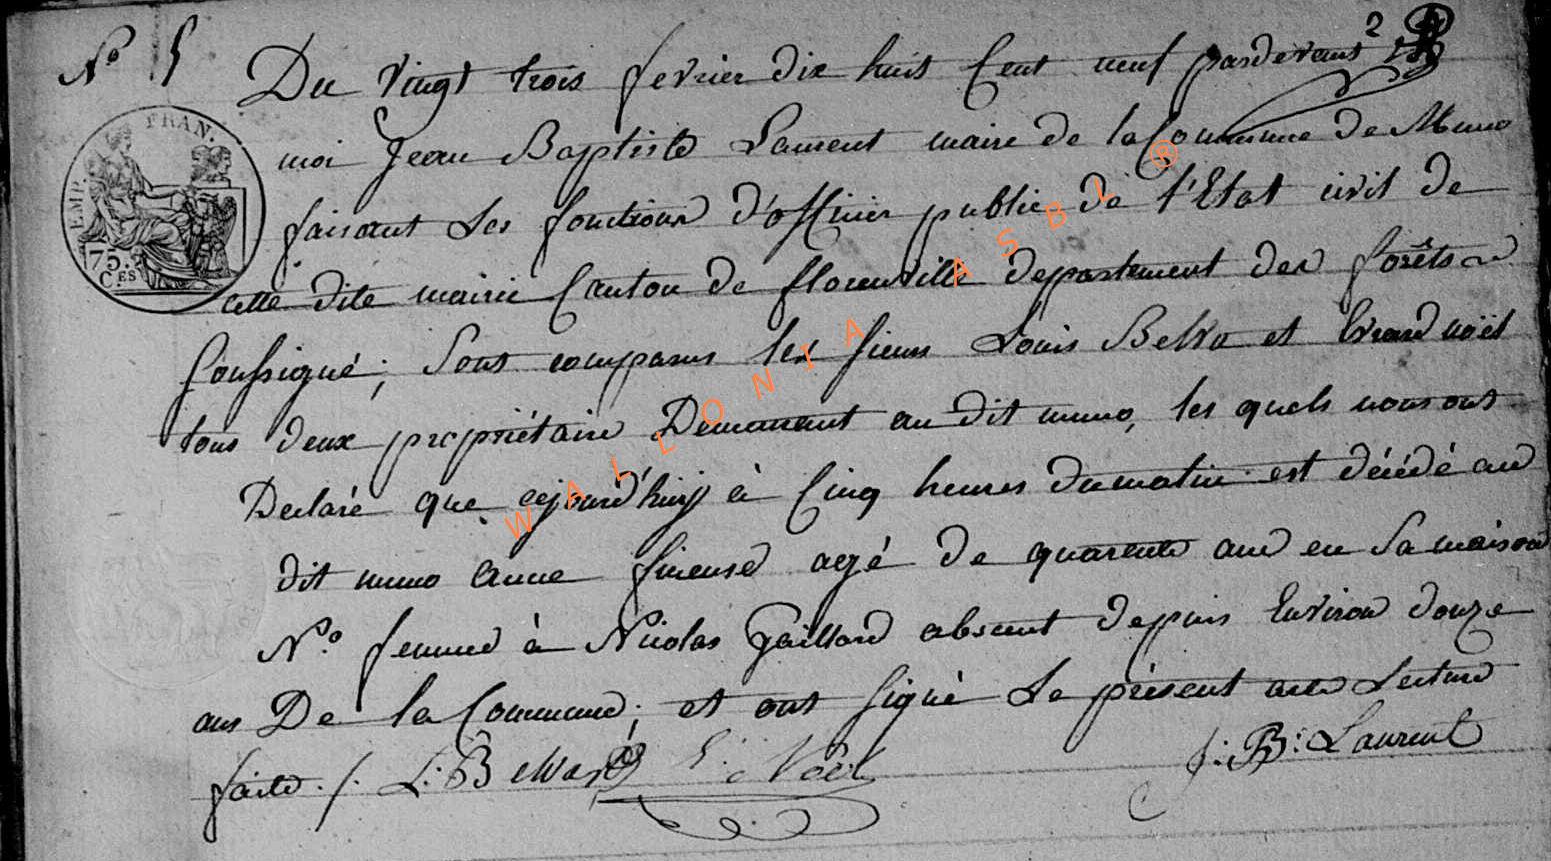 N° 5
2
Du vingt trois fevrier dix huit Cent neuf pardevant
moi Jean Baptiste Laurent maire de la Commune de Muno
faisant les fonctions d'officier public de l'Etat civil de
cette dite mairie Canton de florenville departement des forêts
soussigné; Sont comparus les sieurs Louis et noël
tous deux propriétaire Demeurant au dit muno, les quels nous ont
Declaré que aujourd'huy à Cinq heures du matin est décédé au
dit muno Anne agé de quarente ans en Sa maison
N° femme à Nicolas Gaillard absent depuis Environ douze
ans De la Commune; et ont signé Le présent acte Lecture
faite ./. L: B E: Noël J: B: Laurent
EMP. FRAN.
75.
C.ES
WALLONIA ASBL ®